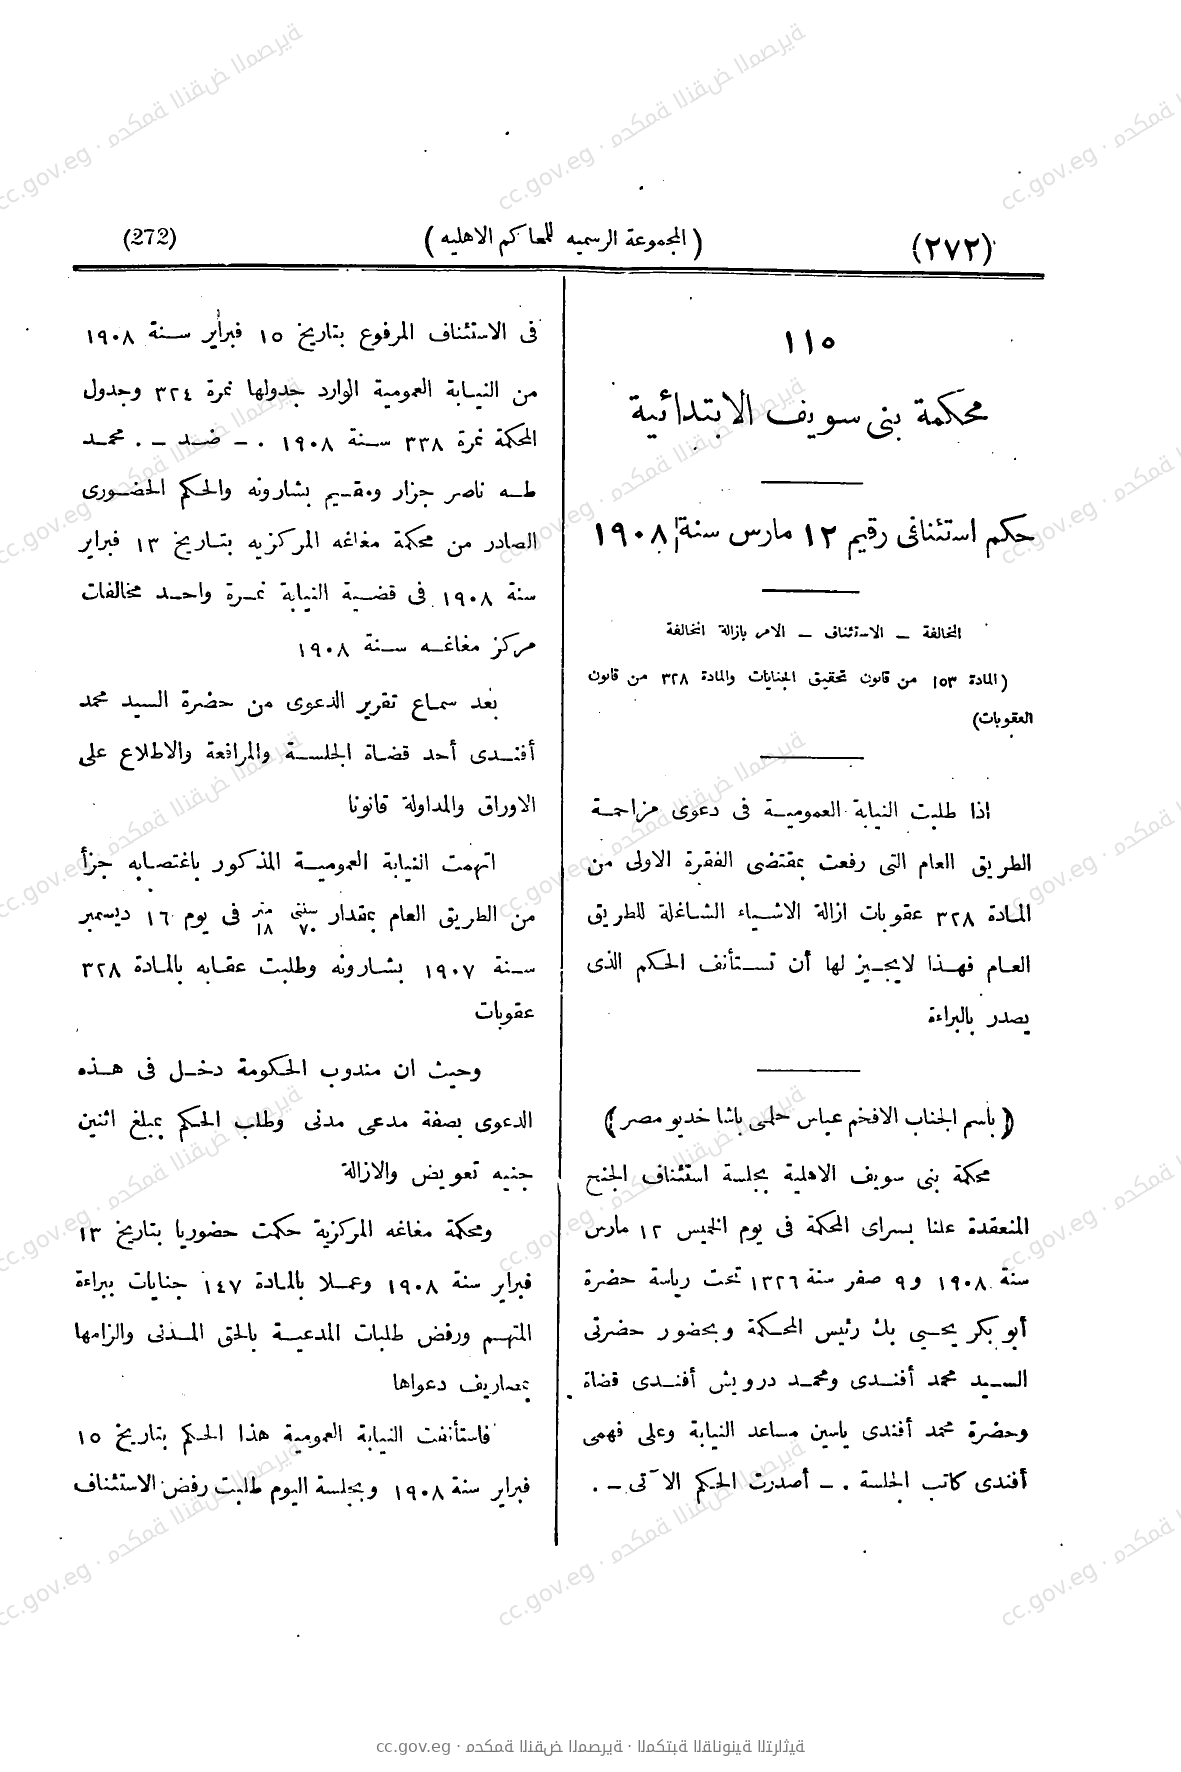 (٢٧٢)
(المجموعة الرسميه للمحاكم الاهليه)
(272)
١١٥
محكمة بنى سويف الابتدائية
حكم استئنافى رقيم ١٢ مارس سنة ١٩٠٨
المخالفة ــ الاستئناف ــ الامر بازالة المخالفة
(المادة ١٥٣ من قانون تحقيق الجنايات والمادة ٣٢٨ من قانون
العقوبات)
اذا طلبت النيابة العمومية فى دعوى مزاحمة
الطريق العام التى رفعت بمقتضى الفقرة الاولى من
المادة ٣٢٨ عقوبات ازالة الاشياء الشاغلة للطريق
العام فهذا لايجيز لها أن تستأنف الحكم الذى
يصدر بالبراءة
(باسم الجناب الافخم عباس حلمى باشا خديو مصر)
محكمة بنى سويف الاهلية بجلسة استئناف الجنح
المنعقدة علنا بسراى المحكمة فى يوم الخميس ١٢ مارس
سنة ١٩٠٨ و٩ صفر سنة ١٣٢٦ تحت رياسة حضرة
أبو بكر يحيى بك رئيس المحكمة وبحضور حضرتى
السيد محمد أفندى ومحمد درويش أفندى قضاة
وحضرة محمد أفندى ياسين مساعد النيابة وعلى فهمى
أفندى كاتب الجلسة . ــ أصدرت الحكم الآتى ــ .
فى الاستئناف المرفوع بتاريخ ١٥ فبراير سنة ١٩٠٨
من النيابة العمومية الوارد جدولها نمرة ٣٢٤ وجدول
المحكمة نمرة ٣٣٨ سنة ١٩٠٨ . ــ ضد ــ . محمد
طه ناصر جزار ومقيم بشارونه والحكم الحضورى
الصادر من محكمة مغاغه المركزيه بتاريخ ١٣ فبراير
سنة ١٩٠٨ فى قضية النيابة نمرة واحد مخالفات
مركز مغاغه سنة ١٩٠٨
بعد سماع تقرير الدعوى من حضرة السيد محمد
أفندى أحد قضاة الجلسة والمرافعة والاطلاع على
الاوراق والمداولة قانونا
اتهمت النيابة العمومية المذكور باغتصابه جزأ
من الطريق العام بمقدار سنتى ٧٠ متر ١٨ فى يوم ١٦ ديسمبر
سنة ١٩٠٧ بشارونه وطلبت عقابه بالمادة ٣٢٨
عقوبات
وحيث ان مندوب الحكومة دخل فى هذه
الدعوى بصفة مدعى مدنى وطلب الحكم بمبلغ اثنين
جنيه تعويض والازالة
ومحكمة مغاغه المركزية حكمت حضوريا بتاريخ ١٣
فبراير سنة ١٩٠٨ وعملا بالمادة ١٤٧ جنايات ببراءة
المتهم ورفض طلبات المدعية بالحق المدنى والزامها
بمصاريف دعواها
فاستأنفت النيابة العمومية هذا الحكم بتاريخ ١٥
فبراير سنة ١٩٠٨ وبجلسة اليوم طلبت رفض الاستئناف
cc.gov.eg · محكمة النقض المصرية · المكتبة القانونية التراثية